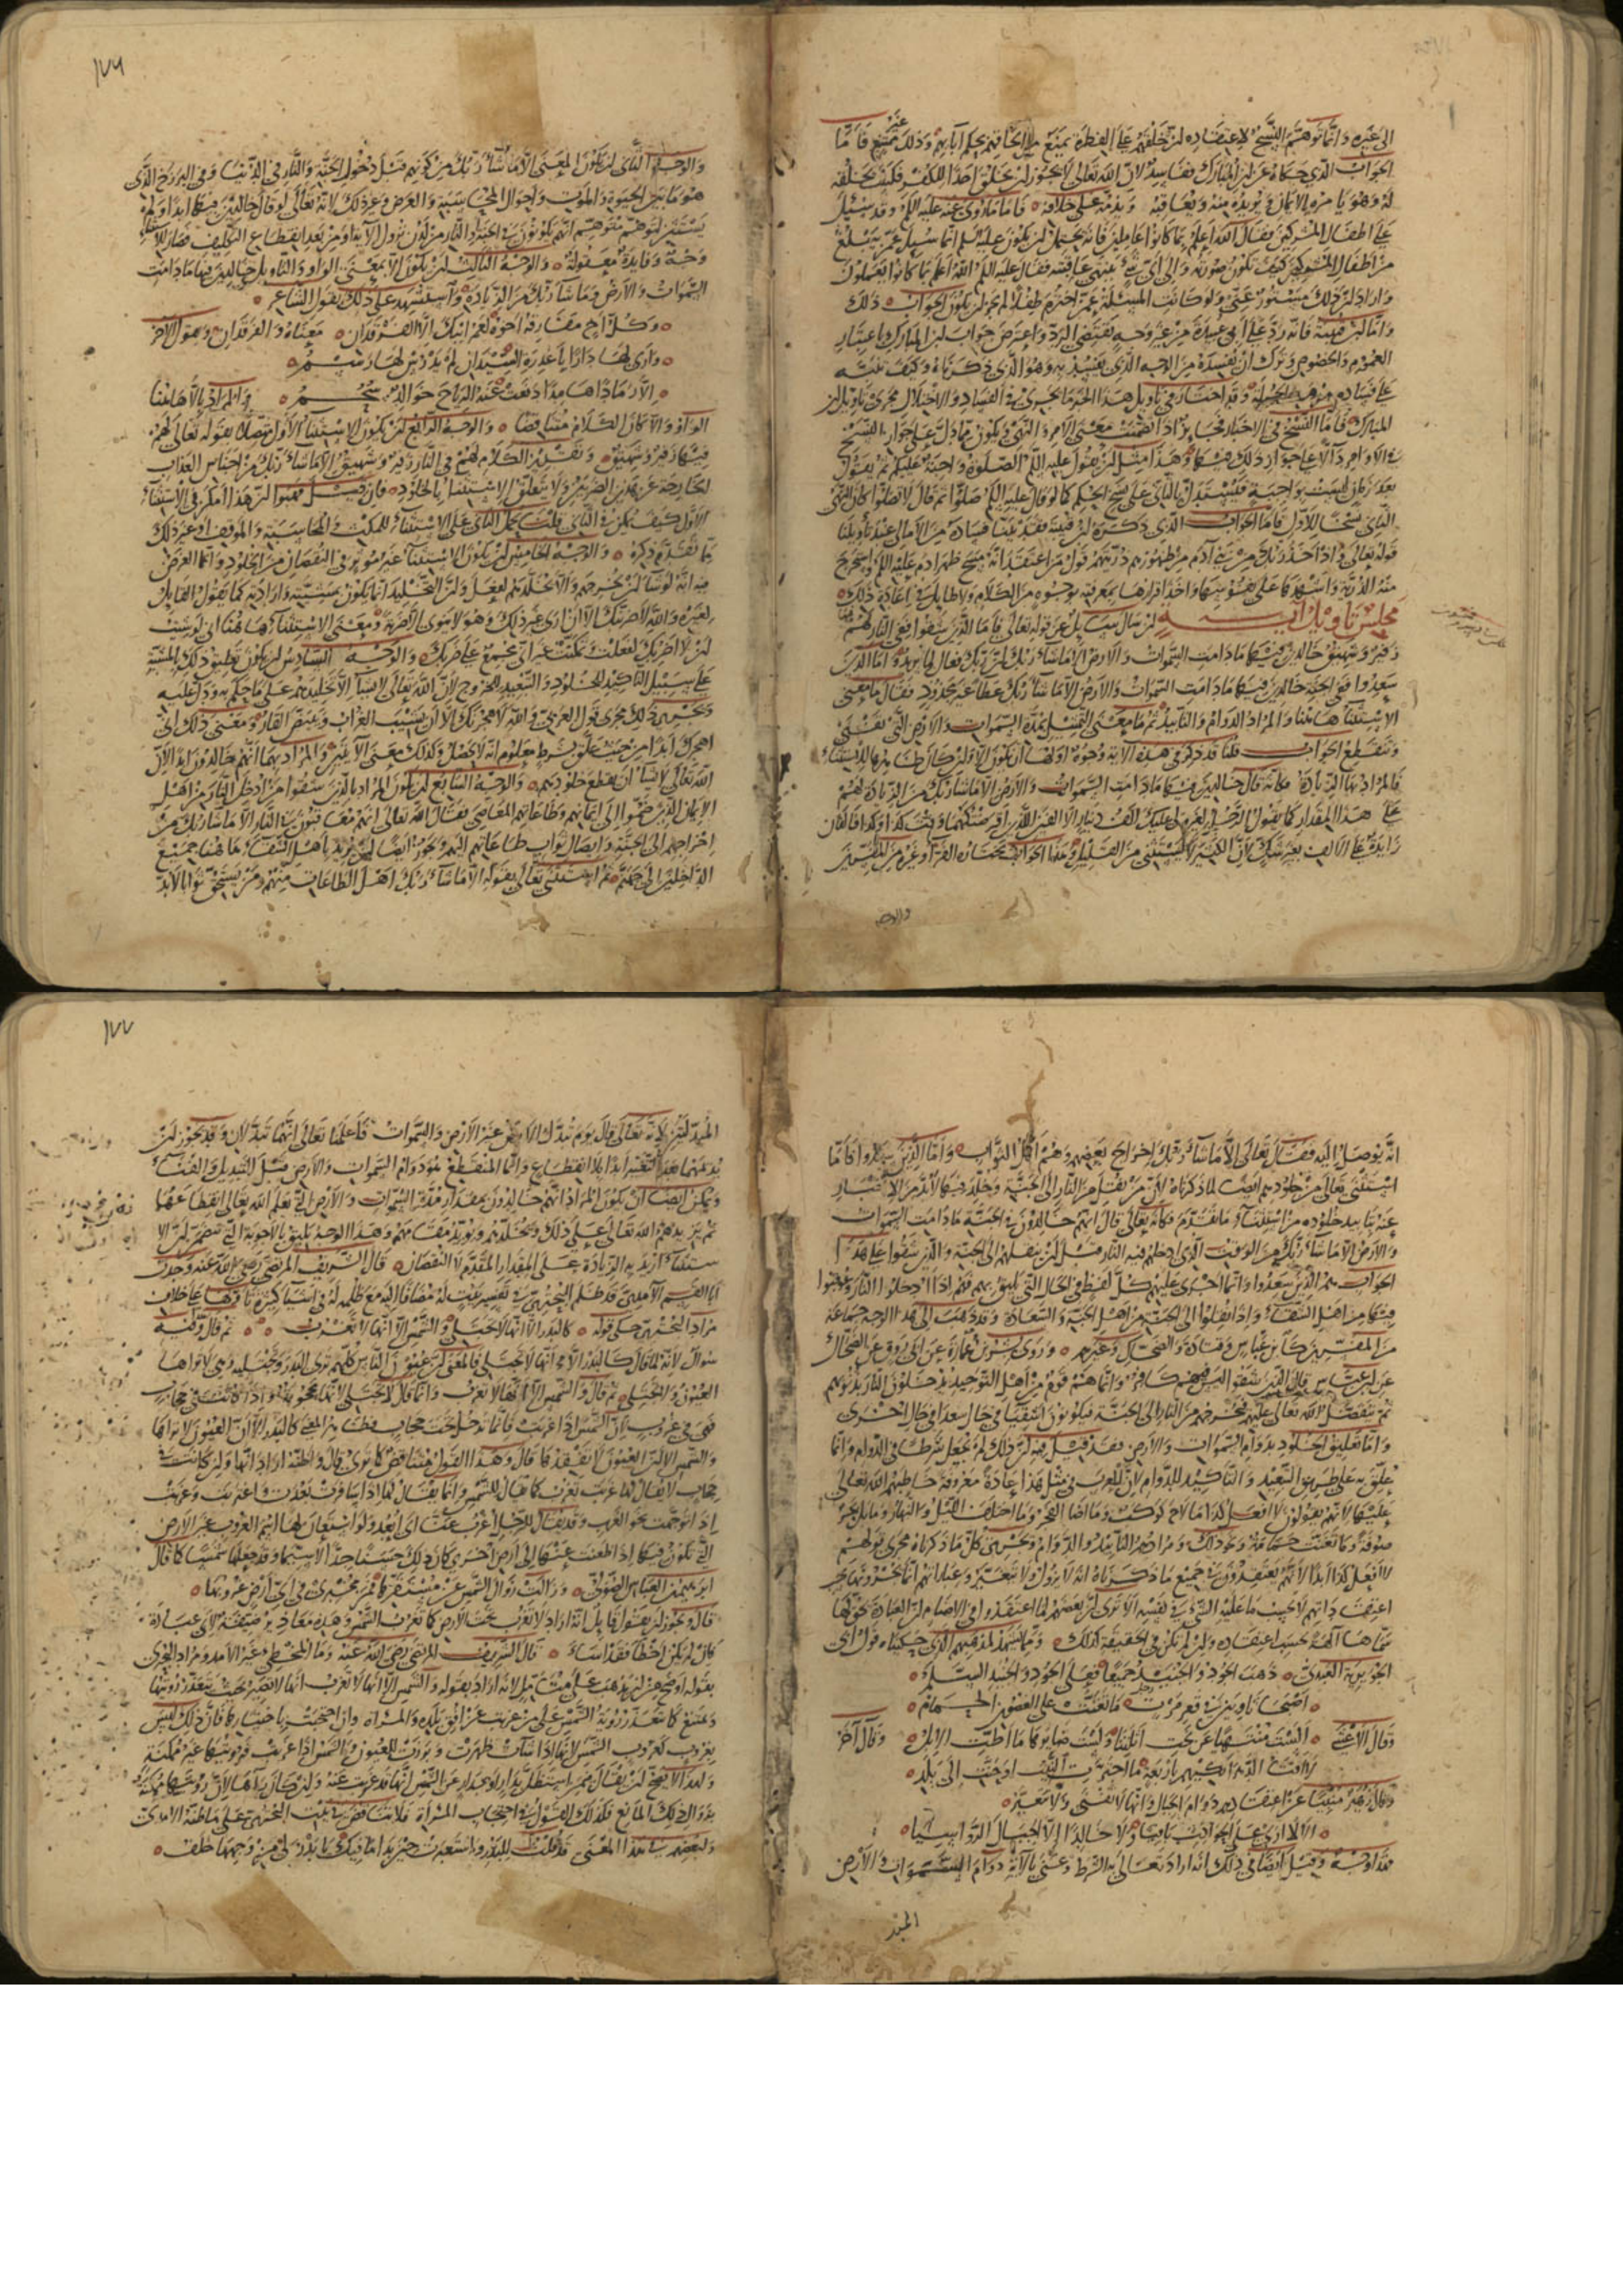 الى غيره وانما توهم النسخ لاعتقاده ان خلقهم على الفطرة يمنع من الحاقهم بحكم آبائهم وذلك غير ممتنع فاما
الجواب الذي حكاه عن ابن المبارك ففاسد لان الله تعالى لا يجوز ان يخلق احدا للكفر فكيف يخلقه
له وهو يأمره بالايمان ويريده منه ويعاقبه ويذمه على خلافه فاما ما روي عنه عليه السلم وقد سئل
على اطفال المشركين فقال الله اعلم بما كانوا عاملين فانه يحتمل ان يكون عليه السلم انما سئل عمن يبلغ
من اطفال المشركين كيف تكون صورته والى اي شيء ينتهي عاقبته فقال عليه السلم الله اعلم بما كانوا يعملون
واراد ان ذلك مستور عني ولو كانت المسئلة عمن اخترم طفلا لم يجز ان يكون الجواب ذلك
العموم والخصوص وترك ان يفسده من الوجه الذي يفسد به وهو الذي ذكرناه
المبارك فاما النسخ في الاخبار
بعد زمان ليست بواجبة فيستدل بالثاني على نسخ الحكم كما لو قال عليه السلم صلوا ثم قال لا تصلوا كان النهي
الثاني نسخا للاول فاما الجواب الذي ذكره ابن قتيبة فقد بينا فساده من الامالي عند تأويلنا
قوله تعالى واذ اخذ ربك من بني آدم من ظهورهم ذريتهم قول من اعتقد انه مسح ظهر ادم عليه السلم واستخرج
منه الذرية واشهدها على نفوسها واخذ اقرارها بمعرفته بوجوه من الكلام ولا طايل في اعادة ذلك
مجلس تاويل آية ان سال سايل عن قوله تعالى فاما الذين شقوا ففي النار لهم فيها
زفير وشهيق خالدين فيها ما دامت السموات والارض الا ما شاء ربك ان ربك فعال لما يريد واما الذين
سعدوا ففي الجنة خالدين فيها ما دامت السموات والارض الا ما شاء ربك عطاء غير مجذوذ فقال ما معنى
الاستثناء هاهنا والمراد الدوام والتابيد ثم ما معنى التمثيل بمدة السموات والارض التي تفنى
وتنقطع الجواب قلنا قد ذكر في هذه الآية وجوه اولها ان تكون الا وان كان ظاهرها الاستثناء
فالمراد بها الزيادة فكانه قال خالدين فيها ما دامت السموات والارض الا ما شاء ربك من الزيادة لهم
على هذا المقدار كما يقول الرجل لغيره لي عليك الف دينار الا الفين الذين اقرضتكهما وقت كذا وكذا فالالفان
زايدة على الالف بغير شك لان الكثير لا يستثنى من القليل وهذا الجواب يختاره الفراء وغيره من المفسرين
والوجه
١٧٦
والوجه الثاني ان يكون المعنى الا ما شاء ربك من كونهم قبل دخول الجنة والنار في الدنيا وفي البرزخ الذي
هو ما بين الحيوة والموت واحوال المحاسبة والعرض وغير ذلك لانه تعالى لو قال خالدين فيها ابدا ولم
يستثن لتوهم متوهم انهم يكونون في الجنة والنار من لدن نزول الآية او من بعد انقطاع التكليف فصار للاستثناء
وجه وفايدة معقولة والوجه الثالث ان يكون الا بمعنى الواو والتاويل خالدين فيها ما دامت
السموات والارض وما شاء ربك من الزيادة واستشهد على ذلك بقول الشاعر
وكل اخ مفارقه اخوه لعمر ابيك الا الفرقدان معناه والفرقدان وهو الآخر
وارى لها دارا باغدرة السيدان لم يدرس لها رسم
الا رمادا هامدا دفعت عنه الرياح خوالد سحم والمراد بالا هاهنا
الواو والا كان الكلام متناقضا والوجه الرابع ان يكون الاستثناء الاول متصلا بقوله تعالى لهم
فيها زفير وشهيق وتقدير الكلام لهم في النار زفير وشهيق الا ما شاء ربك من اجناس العذاب
الخارجة عن هذين الضربين ولا يتعلق الاستثناء بالخلود فان قيل فهبوا ان هذا امكن في الاستثناء
الاول كيف يمكن في الثاني قلنا يحمل الثاني على الاستثناء للمكث في المحاسبة والموقف او غير ذلك
مما تقدم ذكره والوجه الخامس ان يكون الاستثناء غير مؤثر في النقصان من الخلود وانما الغرض
فيه انه لو شاء ان يخرجهم والا يخلدهم لفعل وان التخليد انما يكون بمشيته وارادته كما يقول القايل
لغيره والله لاضربنك الا ان ارى غير ذلك وهو لا ينوي الا ضربه ومعنى الاستثناء هاهنا اني لو شئت
ان لا اضربك لفعلت وتمكنت غير اني مجمع على ضربك والوجه السادس ان يكون تعليق ذلك بالمشية
على سبيل التاكيد للخلود والتبعيد للخروج لان الله تعالى لا يشاء الا تخليدهم على ما حكم به ودل عليه
ويجري ذلك مجرى قول العرب والله لاهجرنك الا ان يشيب الغراب ويبيض القار ومعنى ذلك اني
اهجرك ابدا من حيث علق بشرط معلوم انه لا يحصل وكذلك معنى الآيتين والمراد بهما انهم خالدون ابدا لان
الله تعالى لا يشاء ان يقطع خلودهم والوجه السابع ان يكون المراد بالذين شقوا من ادخل النار من اهل
الايمان الذين ضموا الى ايمانهم وطاعاتهم المعاصي فقال الله تعالى انهم معاقبون في النار الا ما شاء ربك من
اخراجهم الى الجنة وايصال ثواب طاعاتهم اليهم ويجوز ايضا ان يريد باهل الشقاء هاهنا جميع
الداخلين الى جهنم ثم استثنى تعالى بقوله الا ما شاء ربك اهل الطاعات منهم ومن يستحق ثوابا لا بد
انه يوصل اليه فقال تعالى الا ما شاء ربك اخراج بعضهم وهم اهل الثواب واما الذين سعدوا فانما
استثنى تعالى من خلودهم ايضا لما ذكرناه لان من نقل من النار الى الجنة وخلد فيها لا بد من الاخبار
عنه بتابيد خلوده من استثناء ما تقدم فكانه تعالى قال انهم خالدون في الجنة ما دامت السموات
والارض الا ما شاء ربك من الوقت الذي ادخلهم فيه النار قبل ان ينقلهم الى الجنة والذين شقوا على هذا
الجواب هم الذين سعدوا وانما اجرى عليهم كل لفظ في الحال التي تليق بهم فهم اذا ادخلوا النار وعوقبوا
فيها من اهل الشقاء واذا نقلوا الى الجنة من اهل الجنة والسعادة وقد ذهب الى هذا الوجه جماعة
من المفسرين كابن عباس وقتادة والضحاك وغيرهم وروى بشر بن عمارة عن ابي روق عن الضحاك
عن ابن عباس قال الذين شقوا ليس فيهم كافر وانما هم قوم من اهل التوحيد يدخلون النار بذنوبهم
ثم يتفضل الله تعالى عليهم فيخرجهم من النار الى الجنة فيكونون اشقياء في حال سعداء في حال اخرى
واما تعليق الخلود بدوام السموات والارض فقد قيل فيه ان ذلك لم يجعل شرطا في الدوام وانما
علق به على طريق التبعيد والتاكيد للدوام لان للعرب في مثل هذا عادة معروفة خاطبهم الله تعالى
عليها لانهم يقولون لا افعل كذا ما لاح كوكب وما اضاء الفجر وما اختلف الليل والنهار وما بل بحر
صوفة وما تغنت حمامة ونحو ذلك ومرادهم التابيد والدوام ويجري كل ما ذكرناه مجرى قولهم
لا افعل كذا ابدا لانهم يعتقدون في جميع ما ذكرناه انه لا يزول ولا يتغير وعباراتهم انما يخرجونها بحسب
اعتقاداتهم لا بحسب ما عليه الشيء في نفسه الا ترى ان بعضهم لما اعتقدوا في الاصنام ان العبادة تحق لها
سماها آلهة بحسب اعتقاده وان لم تكن في الحقيقة كذلك ومما يشهد لمذهبهم الذي حكيناه قول ابي
الجويرية العبدي ذهب الجود والجنيد جميعا فعلى الجود والجنيد السلم
اصبحا ثاويين في قعر مرت ما تغنت على الغصون الحمام
وقال الاعشى الست منتهيا عن نحت اثلتنا ولست ضايرها ما اطت الابل وقال آخر
وقال زهير منبئا عن اعتقاده دوام الجبال وانها لا تفنى ولا تتغير
الا لا ارى على الحوادث باقيا ولا خالدا الا الجبال الرواسيا
فهذا وجه وقيل ايضا في ذلك انه اراد تعالى به الشرط وعنى بالآية دوام السموات والارض
المبد
١٧٧
المبدلتين لانه تعالى قال يوم تبدل الارض غير الارض والسموات فاعلمنا تعالى انهما تبدلان وقد يجوز ان
يديمهما بعد التغيير ابدا بلا انقطاع وانما المنقطع هو دوام السموات والارض قبل التبديل والفناء
ويمكن ايضا ان يكون المراد انهم خالدون بمقدار مدة السموات والارض التي يعلم الله تعالى انقطاعها
ثم يزيدهم الله تعالى على ذلك ويخلدهم ويؤبد مقامهم وهذا الوجه يليق بالاجوبة التي تتضمن ان الا
ستثناء اريد به الزيادة على المقدار المتقدم لا النقصان قال الشريف المرتضى رضي الله عنه وجدت
ابا القسم الآمدي قد ظلم البحتري في تفسير بيت له مضافا اليه مع ظلمه له في اشياء كثيرة تاولها على خلاف
مراد البحتري حكى قوله كالبدر الا انها لا تجتلى والشمس الا انها لا تغرب ثم قال وفيه
سؤال لانه لما قال كالبدر الا انها لا تجتلى فالمعنى ان عيون الناس كلهم ترى البدر وتجتليه وهي لا تراها
العيون ولا تجتلى ثم قال والشمس الا انها لا تغرب وانما قال لا تجتلى لانها محجوبة واذا كانت في حجاب
فهي في غروب لان الشمس اذا غربت فانما تدخل تحت حجاب فظاهر المعنى كالبدر الا ان العيون لا تراها
والشمس الا ان العيون لا تفقدها قال وهذا القول متناقض كما ترى قال واظنه اراد انها وان كانت في
حجاب لا يقال لها غربت تغرب كما يقال للشمس وانما يقال لها اذا سافرت بعدت واغتربت وغربت
اذا توجهت نحو الغرب وقد يقال للرجل اغرب عنا اي ابعد ولو استعار لها اسم الغروب عن الارض
التي تكون فيها اذا ظعنت عنها الى ارض اخرى كان ذلك حسنا جدا لا سيما وقد جعلها شمسا كما قال
ابرهيم بن العباس الصولي وزالت زوال الشمس عن مستقرها فمن مخبري في اي ارض غروبها
قال ويجوز ان يقول قايل انه اراد لا تغرب تحت الارض كما تغرب الشمس وهذه معاذير ضيقة لابي عبادة
فان لم يكن اخطأ فقد اساء قال الشريف المرتضى رضي الله عنه وما المخطئ غير الآمدي ومراد البحتري
بقوله اوضح من ان يذهب على متأمل لانه اراد بقوله والشمس الا انها لا تغرب انها لا تصير بحيث يتعذر رؤيتها
ويمتنع كما يتعذر رؤية الشمس على من غربت عن افق بلده والمراة وان احتجبت باختيارها فان ذلك ليس
بغروب كغروب الشمس لانها اذا شاءت ظهرت وبرزت للعيون والشمس اذا غربت فرؤيتها غير ممكنة
ولهذا لا يصح ان يقال فيمن استظل بدار او جدار عن الشمس انها قد غربت عنه وان كان غير راء لها لان رؤيتها ممكنة
بزوال ذلك المانع فكذلك القول في احتجاب المرأة فلا تناقض في بيت البحتري على ما ظنه الآمدي
ولبعضهم في هذا المعنى قد قلت للبدر واستعبرت حين بدا ما فيك يا بدر لي من وجهها خلف